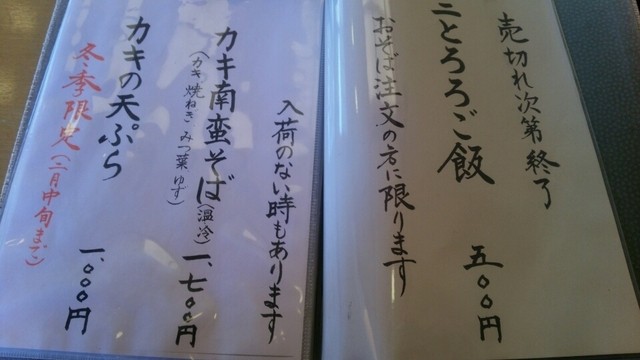 売切れ次第終了
ニとろろご飯 五〇〇円
おそば注文の方に限ります
入荷のない時もあります
カキ南蛮そば(温冷) 一、七〇〇円
(カキ 焼ねぎ みつ葉 ゆず)
カキの天ぷら 一、〇〇〇円
冬季限定(二月中旬まで)